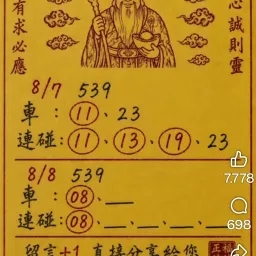 有求必應
心誠則靈
8/7 539
車：11、23
連碰：11、13、19、23
8/8 539
車：08、__
連碰：08、__、__、__
留言+1 直接分享給您
7,778
698